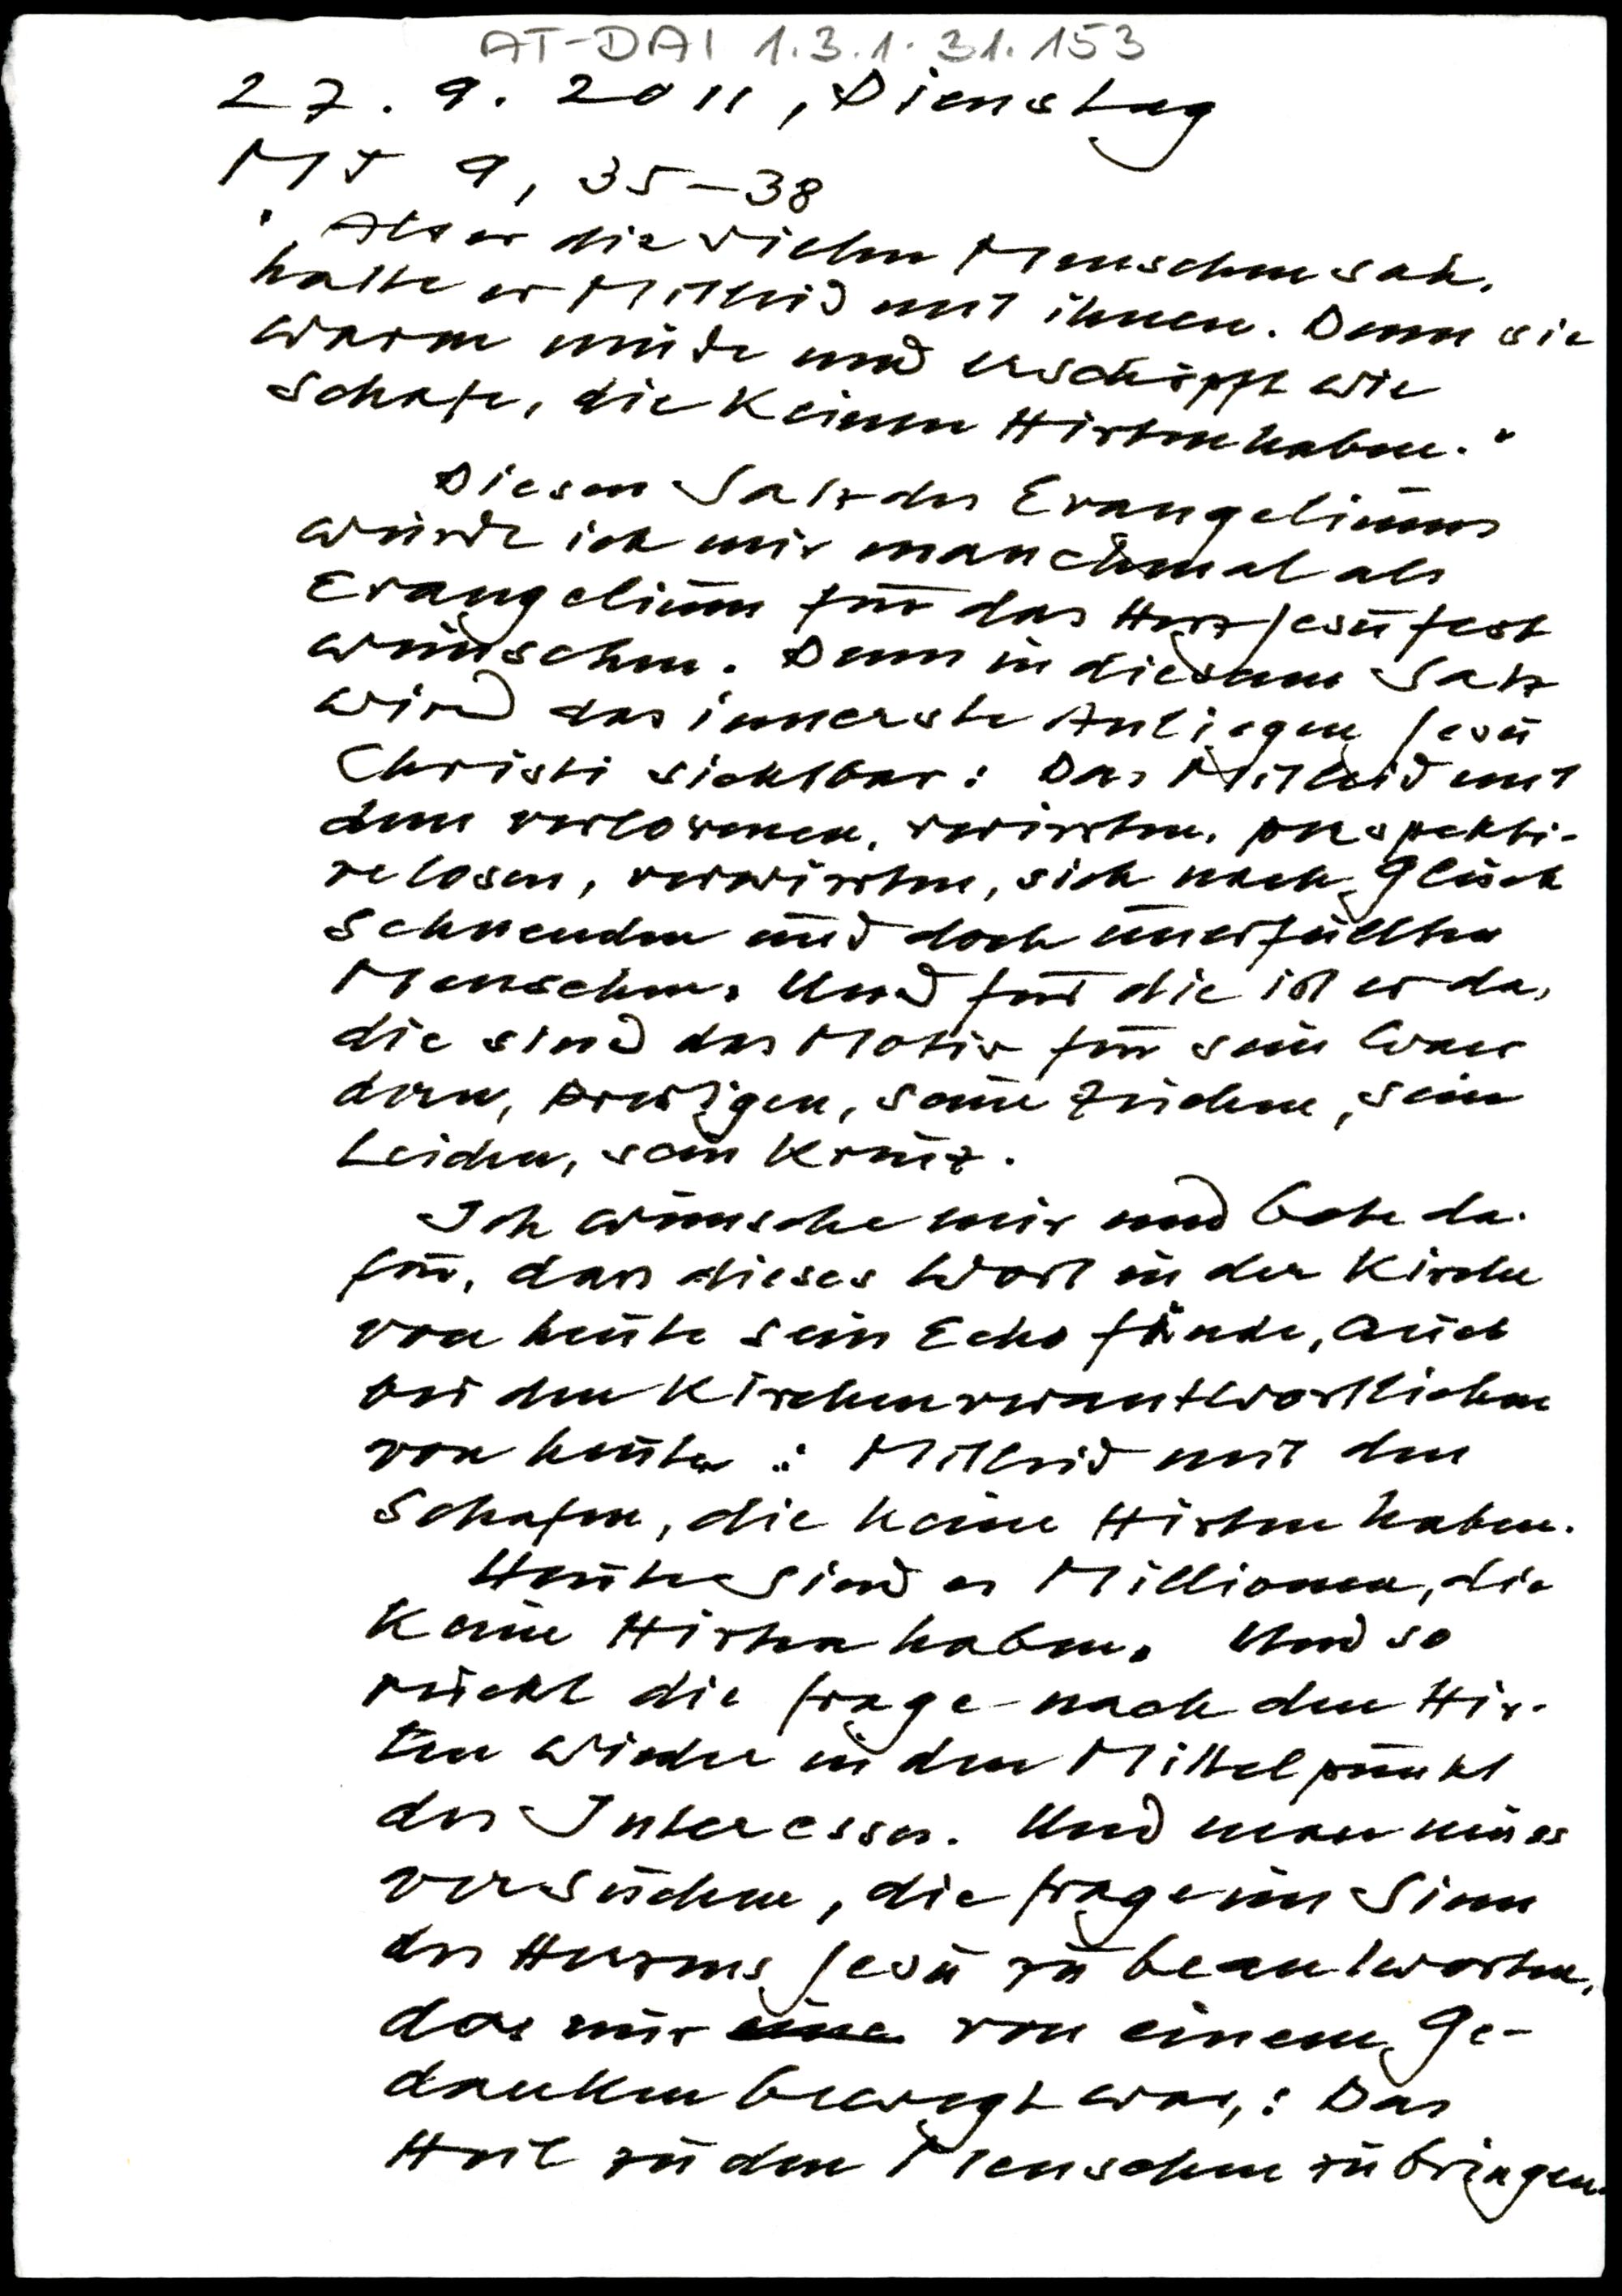 AT-DAI 1.3.1.31.153
27.9.2011, Dienstag
Mt 9, 35-38
"Als er die vielen Menschen sah,
hatte er Mitleid mit ihnen. Denn sie
waren müde und erschöpft wie
Schafe, die keinen Hirten haben."
Diesen Satz des Evangeliums
würde ich mir manchmal als
Evangelium für das Herz Jesu fest
wünschen. Denn in diesem Satz
wird das innerste Anliegen Jesu
Christi sichtbar: Das Mitleid mit
dem verlorenen, verirrten, perspekti-
velosen, verwirrten, sich nach Glück
sehnenden und doch unerfüllten
Menschen. Und für die ist er da,
die sind das Motiv für sein Wan
dern, Predigen, seine Zeichen, sein
Leiden, sein Kreuz.
Ich wünsche mir und bete da-
für, dass dieses Wort in der Kirche
von heute sein Echo fände, auch
bei den Kirchenverantwortlichen
von heute: Mitleid mit den
Schafen, die keine Hirten haben.
Heute sind es Millionen, die
keine Hirten haben. Und so
rückt die Frage nach den Hir-
ten wieder in den Mittelpunkt
des Interesses. Und man muss
versuchen, die Frage im Sinn
des Herzens Jesu zu beantworten,
das nur von einem Ge-
danken bewegt war,: Das
Heil zu den Menschen zu bringen.